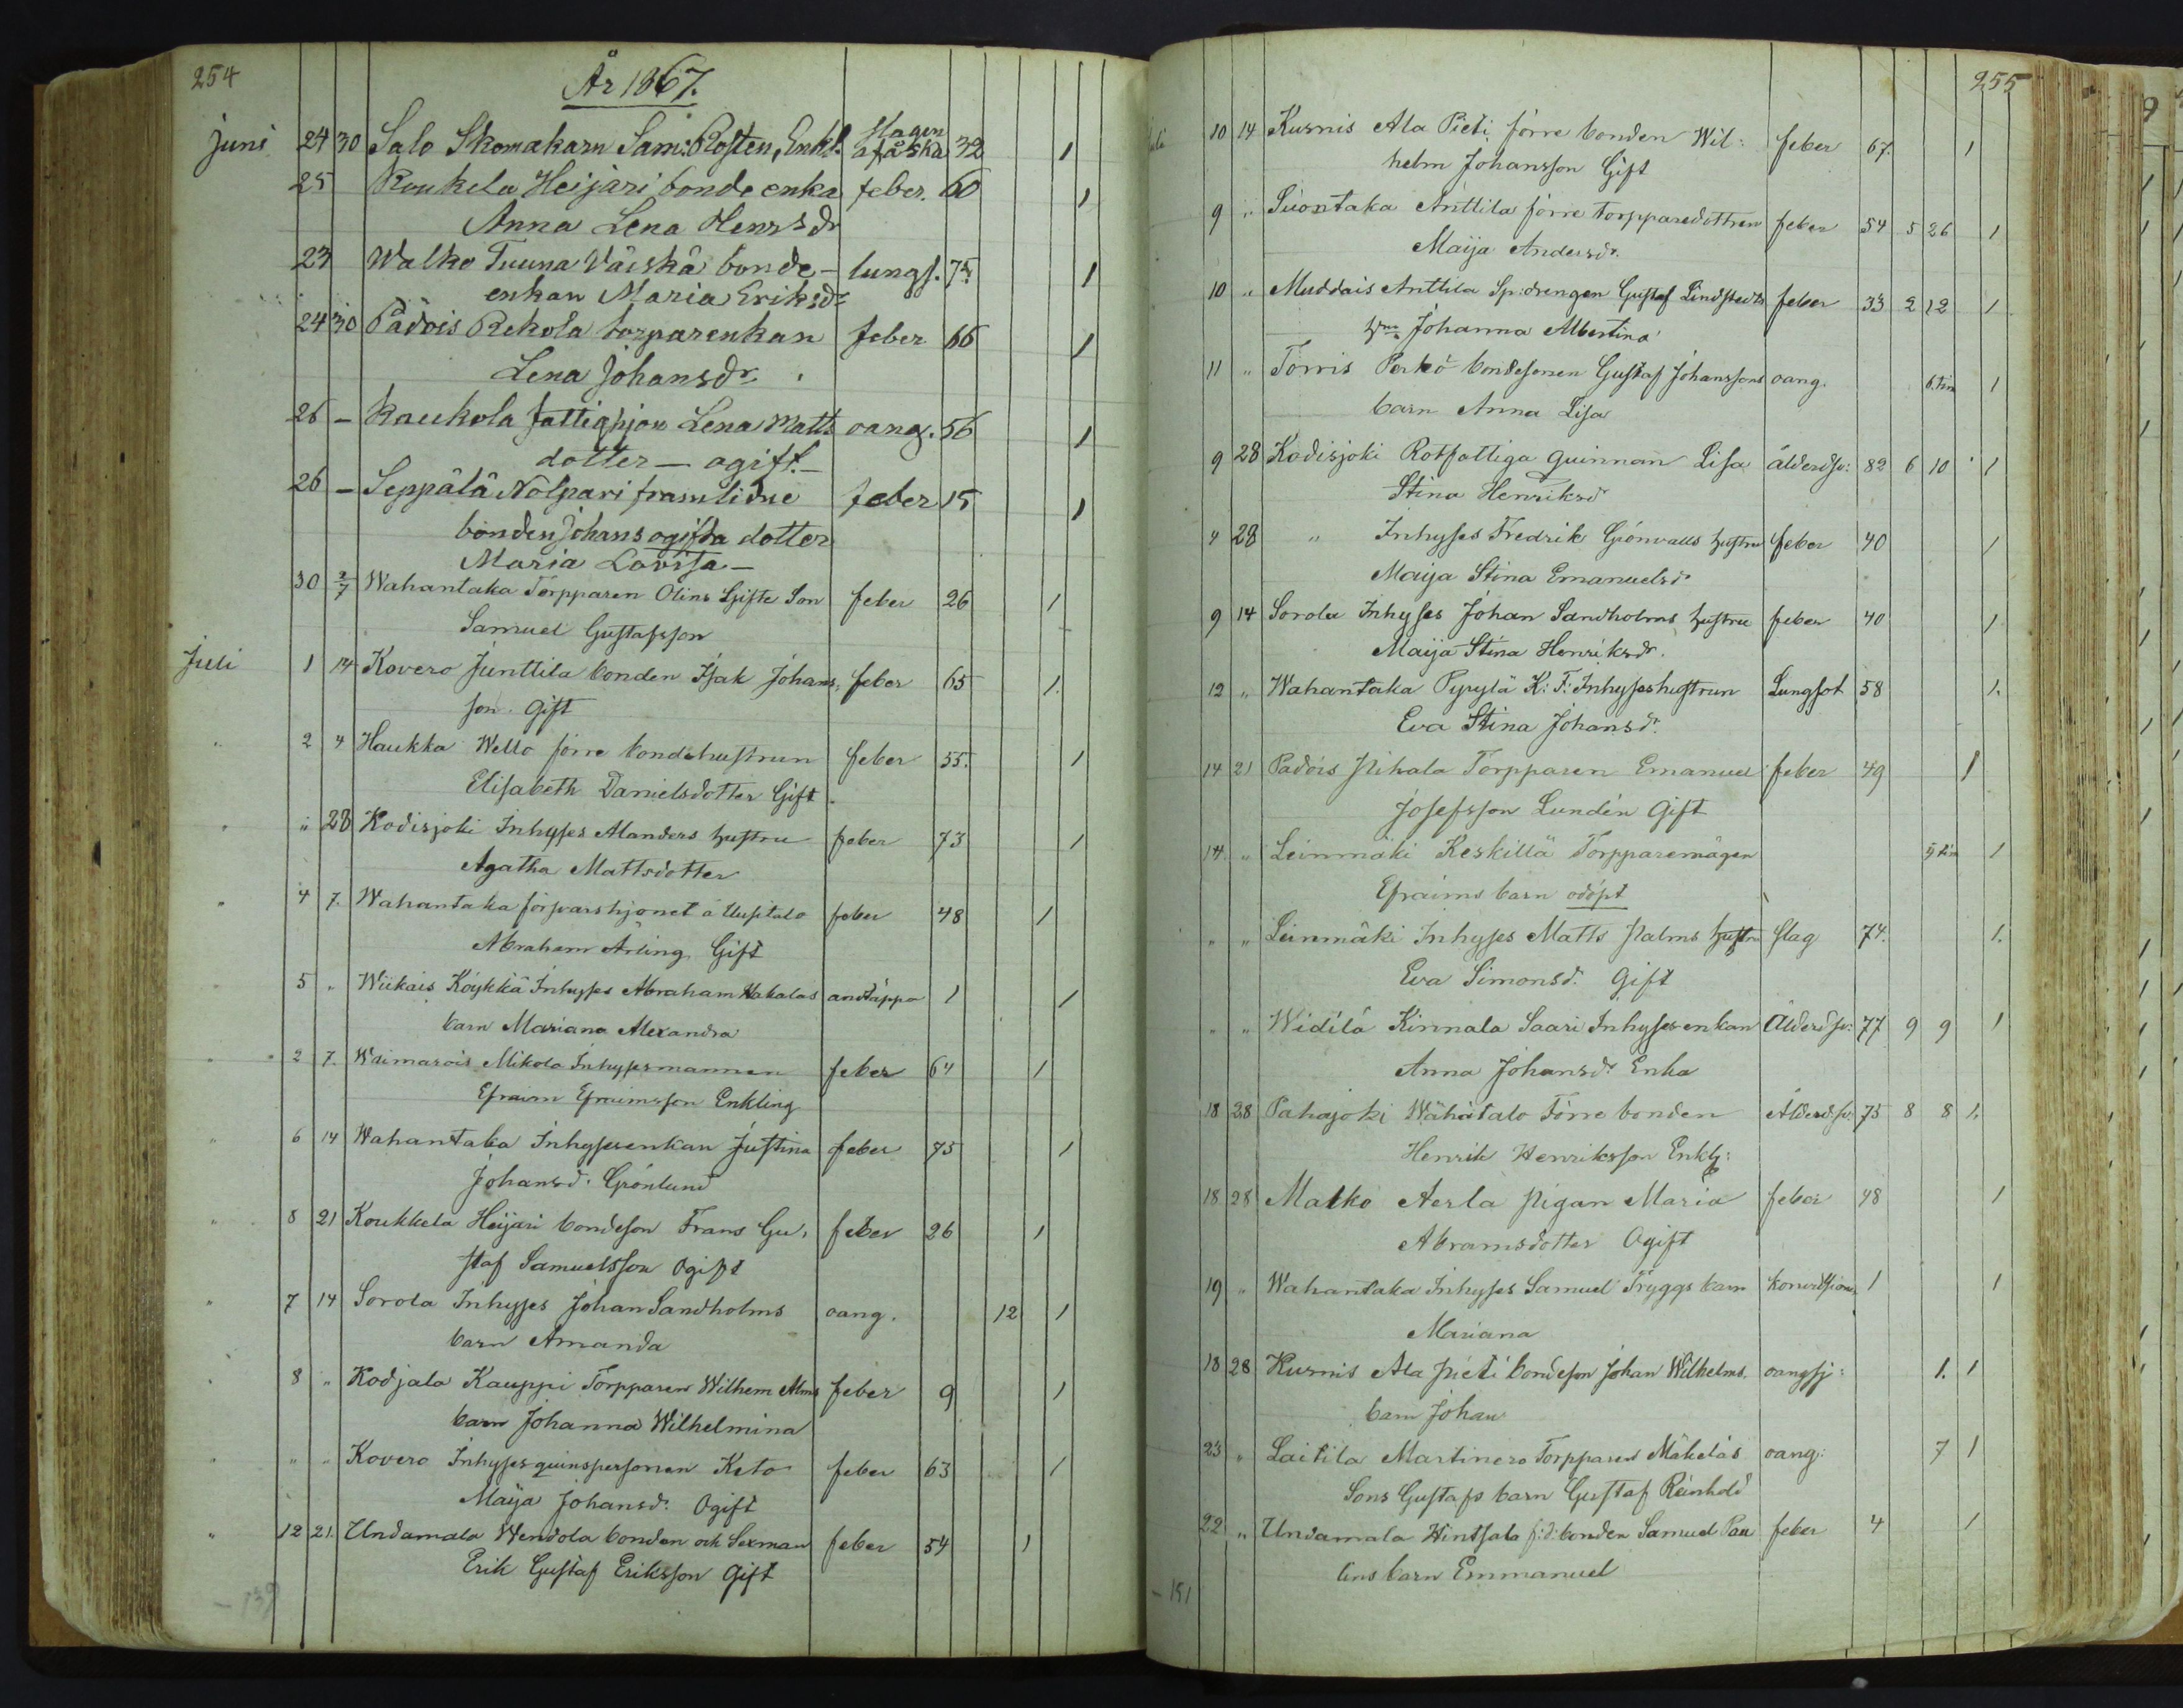 254
År 1867.
juni 24 30 Salo Skomakarn Sam: Rosten, Enkl. slagen af åska 32 1
25 Koukela Heijari bonde enka feber. 60 1
Anna Lena Henrsdr
23 Walko Tuuna Väiskä bonde- lungs. 75 1
enkan Maria Eriksdr
24 30 Padois Rekola torparenkan feber 66 1
Lena Johansdr.
26 - Kaukola fattighjon Lena Matts oang. 56 1
dotter - ogift -
26 - Seppälä Nolpari framlidne feber 15 1
bonden Johans ogifta dotter
Maria Lovisa -
30 2/7 Wahantaka Torpparen Olins Gifte Son feber 26 1
Samuel Gustafsson
Juli 1 14 Kovero Junttila bonden Isak Johans, feber 65 1.
son. Gift
" 2 4 Haukka Wello förre bondehustrun feber 55. 1
Elisabeth Danielsdotter Gift
" " 28 Kodisjoki Inhyses Alanders hustru feber 73 1
Agatha Mattsdotter
" 4 7. Wahantaka försvarshjonet å Uusitalo feber 48 1
Abraham Arling Gift
5 " Wiikais Köykkä Inhyses Abraham Hakalas andtäppa 1 1
barn Mariana Alexandra
" 2 7. Waimarois Mikola Inhysesmannen feber 64 1
Efraim Efraimsson Enkling
" 6 14 Wahantaka Inhysesenkan Justina feber 75 1
Johansd. Grönlund
" 8 21 Koukkela Heijari bondeson Frans Gu, feber 26 1
staf Samuelsson Ogift
" 7 14 Sorola Inhyses Johan Sandholms oang. 12 1
barn Amanda
" 8 " Kodjala Kauppi Torpparen Wilhem Alms feber 9 1
barn Johanna Wilhelmina
" " " Kovero Inhysesquinspersonen Keto feber 63 1
Maija Johansd. Ogift
" 12 21. Undamala Wendola bonden och Sexman feber 54 1
Erik Gustaf Eriksson Gift
- 139
255
10 14 Kurnis Ala Pieti förre bonden Wil: feber 67. 1
helm Johansson Gift
9 " Suontaka Anttila förre torpparedottren feber 54 5 26 1
Maija Andersdr.
10 " Muddais Anttila Sp: drengen Gustaf Lindstedts feber 33 2 12 1
Johanna Albertina
11 " Torris Perkö bondesonen Gustaf Johanssons oang. 6. tim 1
barn Anna Lisa
9 28 Kodisjoki Rotfattiga quinnan Lisa ålderdsv: 82 6 10 1
Stina Henriksd
4 28 " Inhyses Fredrik Grönvalls hustru feber 40 1
Maija Stina Emanuelsdr
9 14 Sorola Inhyses Johan Sandholms hustru feber 40 1
Maija Stina Henriksdr.
12 " Wahantaka Pyrylä K: T: Inhyseshustrun Lungsot 58 1.
Eva Stina Johansd.
14 21 Padois Pihala Torpparen Emanuel feber 49 1
Josefsson Lundén Gift
14 " Leinmäki Keskillä Torpparemågen 5 tim 1
Efraims barn odöpt
" " Leinmäki Inhyses Matts Palms hustru slag 74. 1.
Eva Simonsd. Gift
" " Widilä Kinnala Saari Inhysesenkan Ålderdsv: 77 9 9 1
Anna Johansdr. Enka
18 28 Pahajoki Wähätalo Förre bonden Ålderdsv: 75 8 8 1.
Henrik Henriksson Enklg:
18 28 Malko Aerla Pigan Maria feber 48 1
Abramsdotter Ogift
19 " Wahantaka Inhyses Samuel Tryggs barn konvulsioner 1 1
Mariana
18 28 Kurnis Ala Pieti bondeson Johan Wilhelms. oangfj: 1. 1
barn Johan
23 " Laitila Martinero Torpparen Mäkeläs oang: 7 1
Sons Gustafs barn Gustaf Reinhold
22 " Undamala Hintsala f:d: bonden Samuel Pau feber 4 1
lins barn Emmanuel
- 151